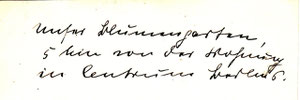 Unser Blumengarten,
5 Min von der Wohnung
in Centrum Berlins.